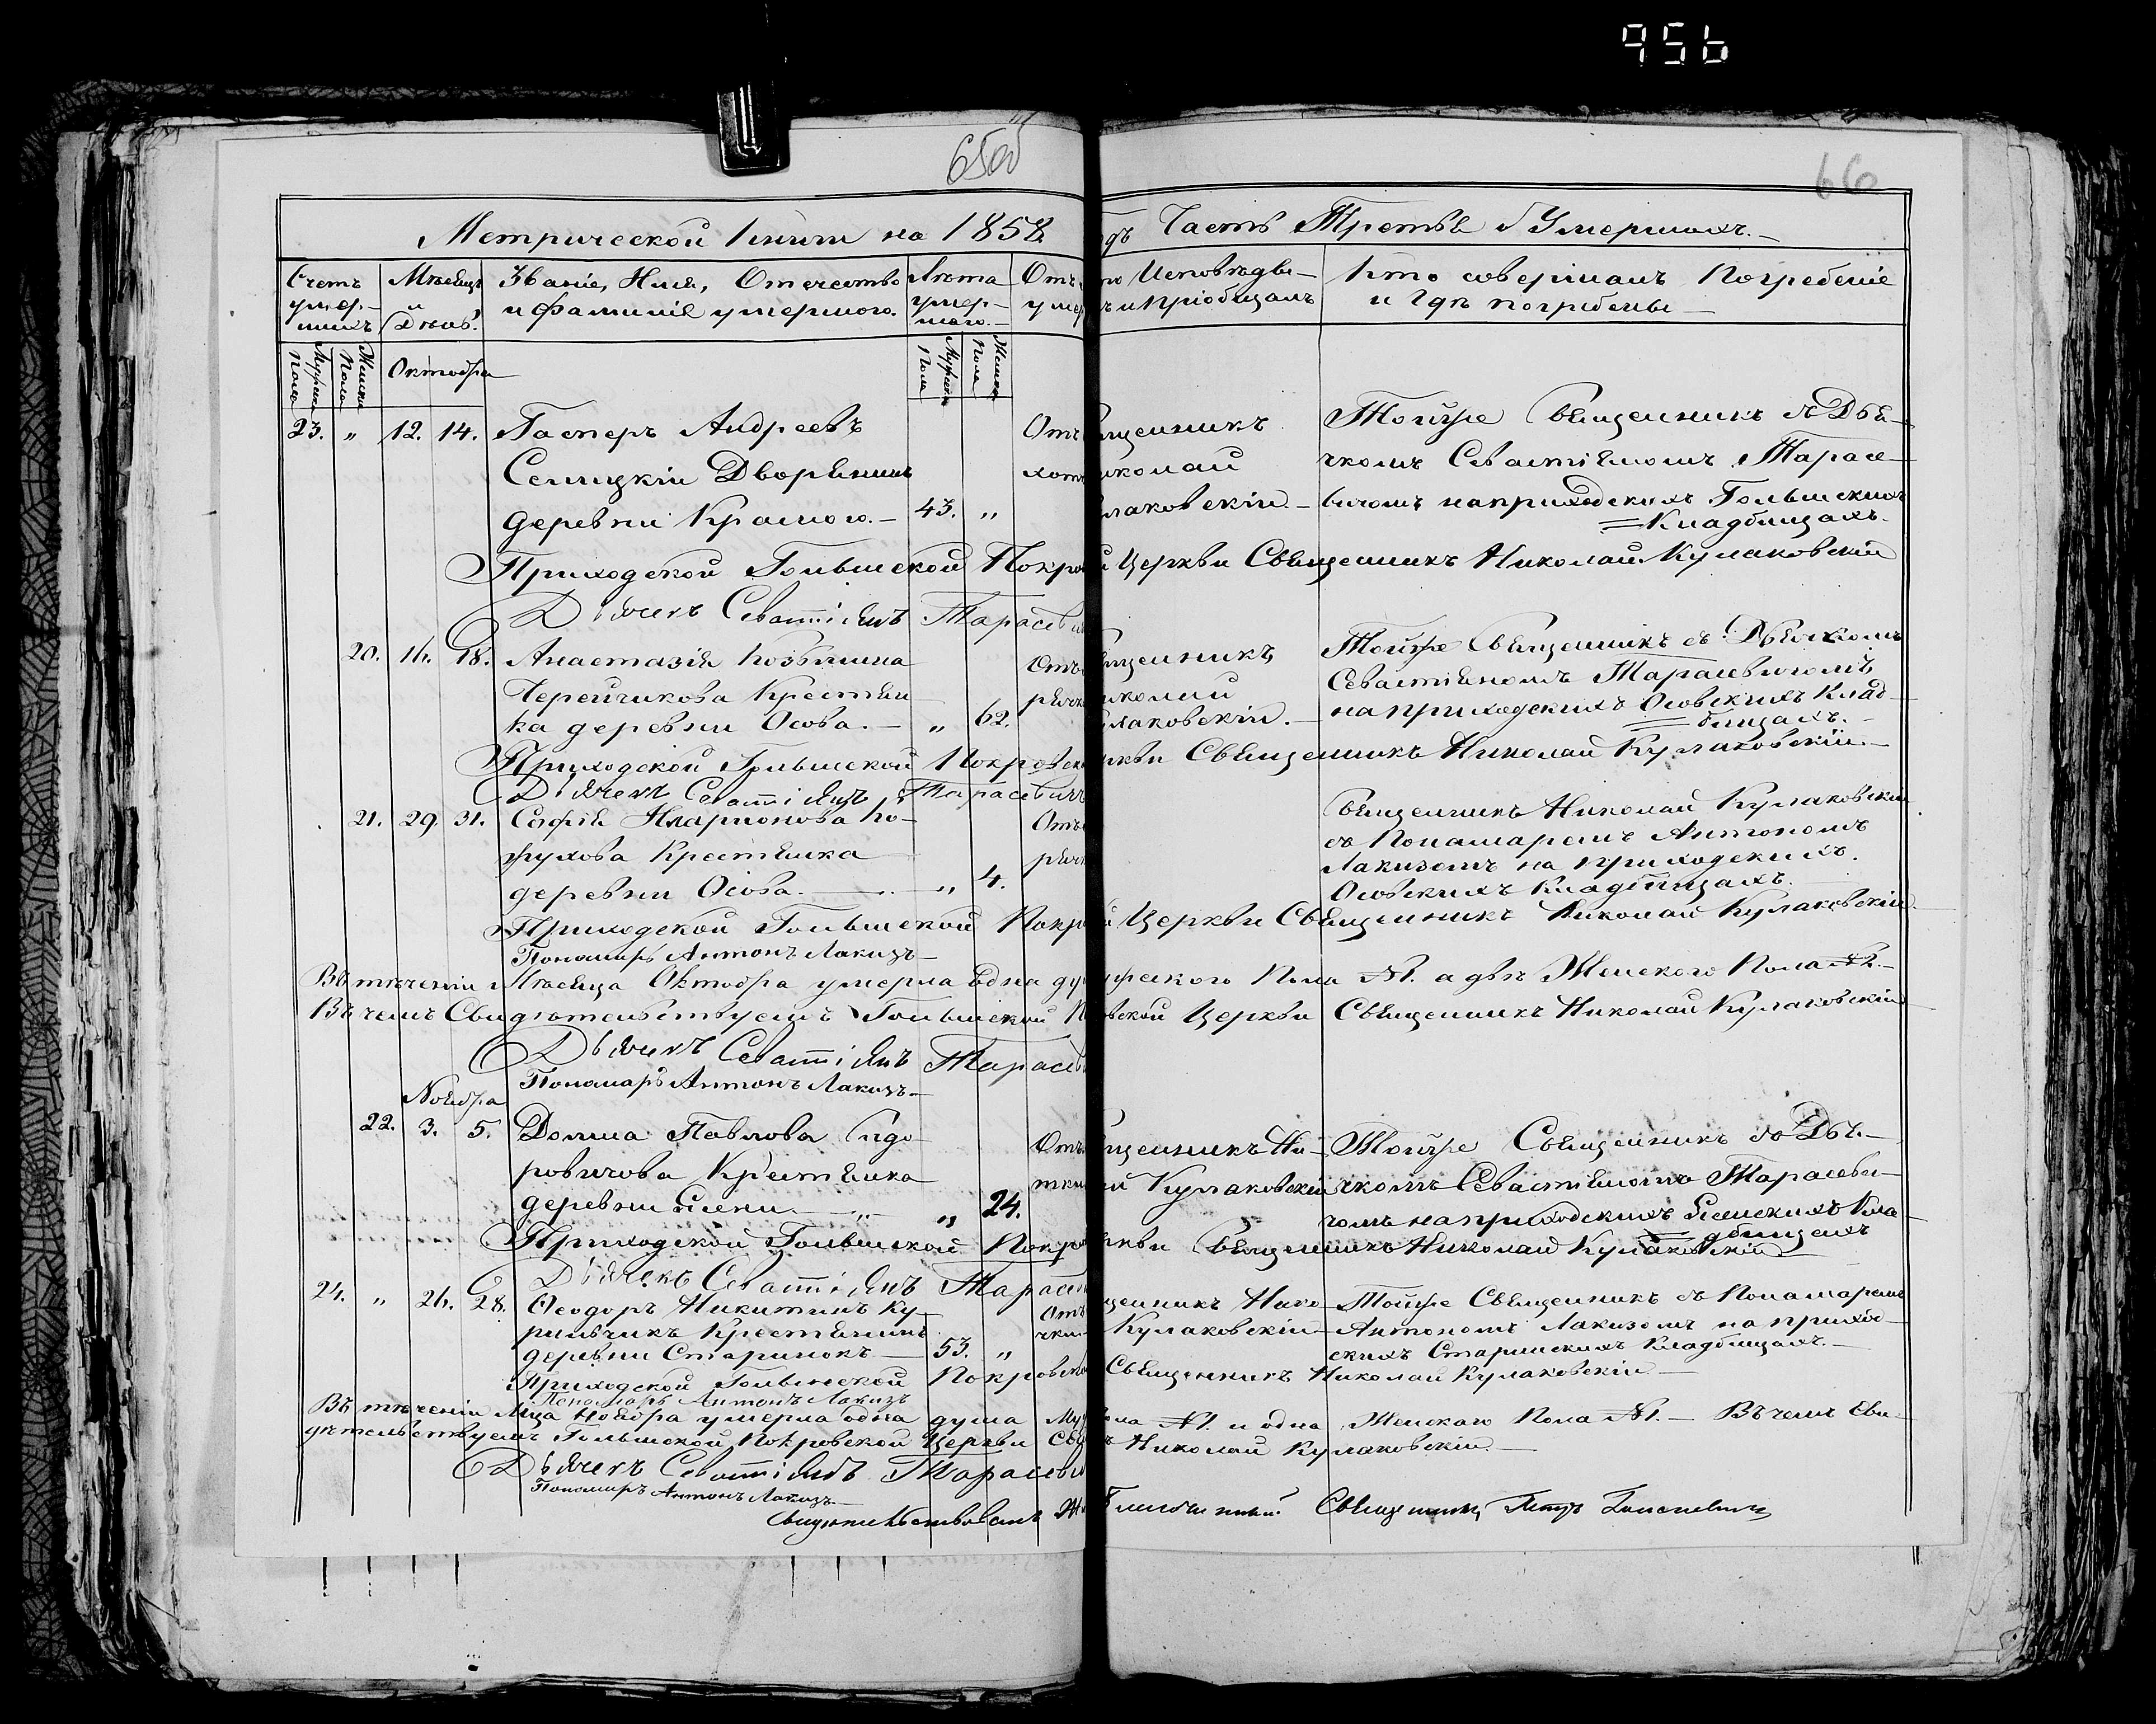 956
65об
66
Метрической Книги на 1858 дъ Часть Третья о Умершихъ.
Счетъ умер-шихъ
Мѣсяцъ и День.
Званіе, Имя, Отчество и Фамилія умершого.
Лѣта умер-шаго.
Отъ
уме
то Исповѣдыва-
ъ и Пріобщалъ
Кто совершалъ Погребеніе
и Гдѣ погребены
Мужска Пола
Женска Пола
Октобра
Мужска Пола
Женска Пола
23. " 12. 14. Гасперъ Андреевъ
Селицкій Дворянинъ
деревни Красного. 43. "
Отъ
хот
ященникъ
иколай
лаковскій.
Тойже Священникъ съ Дья-
чкомъ Севастіяномъ Тарасе-
вичомъ на приходскихъ Гольшскихъ
Кладбищахъ.
Приходской Гольшской Покро й Церкви Священникъ Николай Кулаковскій
Дьячекъ Севастіянъ Тарасеви
20. 16. 18. Анастазія Козьмина
Черейчикова Крестян
ка деревни Осова. " 62.
Отъ
рячк
ященникъ
иколай
лаковскій.
Тойже Священникъ съ Дьячкомъ
Севастіяномъ Тарасевичомъ
на приходскихъ Осовскихъ Клад-
бищахъ.
Приходской Гольшской Покровск ркви Священникъ Николай Кулаковскій.
Дьячекъ Севастіянъ Тарасевичъ
21. 29. 31. Софія Иларионова Ко-
жухова Крестянка
деревни Осова. " 4.
Отъ
рячк
Священникъ Николай Кулаковскій
съ Понамаремъ Антономъ
Лакизомъ на приходскихъ
Осовскихъ Кладбищахъ.
Приходской Гольшской Покро й Церкви Священникъ Николай Кулаковскій.
Пономарь Антонъ Лакизъ
Въ теченіи Мѣсяца Октобра умерла одна ду ужеского Пола №1. а двѣ Женского Пола №2.
Въ чемъ Свидѣтельствуемъ Гольшской П овской Церкви Священникъ Николай Кулаковскій
Дьячекъ Севастіянъ Тарасев
Пономарь Антонъ Лакизъ
Ноября
22. 3. 5. Домна Павлова Сидо
ровичова Крестянка
деревни Ясени " 24.
Отъ
тки
щенникъ Ни-
й Кулаковскій
Тойже Священникъ съ Дья-
чкомъ Севастіяномъ Тарасеви-
чомъ на приходскихъ Ясенскихъ Кла-
дбищахъ
Приходской Гольшской Покро ркви Священникъ Николай Кулаковскій
Дьячекъ Севастіянъ Тарасев
24. " 26. 28. Ѳеодоръ Никитинъ Ку-
рильчикъ Крестянинъ
деревни Старинокъ 53. "
Отъ
щенникъ Нико
Кулаковскій
Тойже Священникъ съ Понамаремъ
Антономъ Лакизомъ на приход-
скихъ Старинскихъ Кладбищахъ.
Приходской Гольшской Покровско Священникъ Николай Кулаковскій
Пономарь Антонъ Лакизъ
Въ теченіи Мца Ноября умерла одна душа Муж ола №1. и одна Женского Пола №1. Въ чемъ Сви-
дѣтельствуемъ Гольшской Покровской Церкви Свя ъ Николай Кулаковскій.
Дьячекъ Севастіянъ Тарасеви
Пономарь Антонъ Лакизъ
Священникъ Петръ